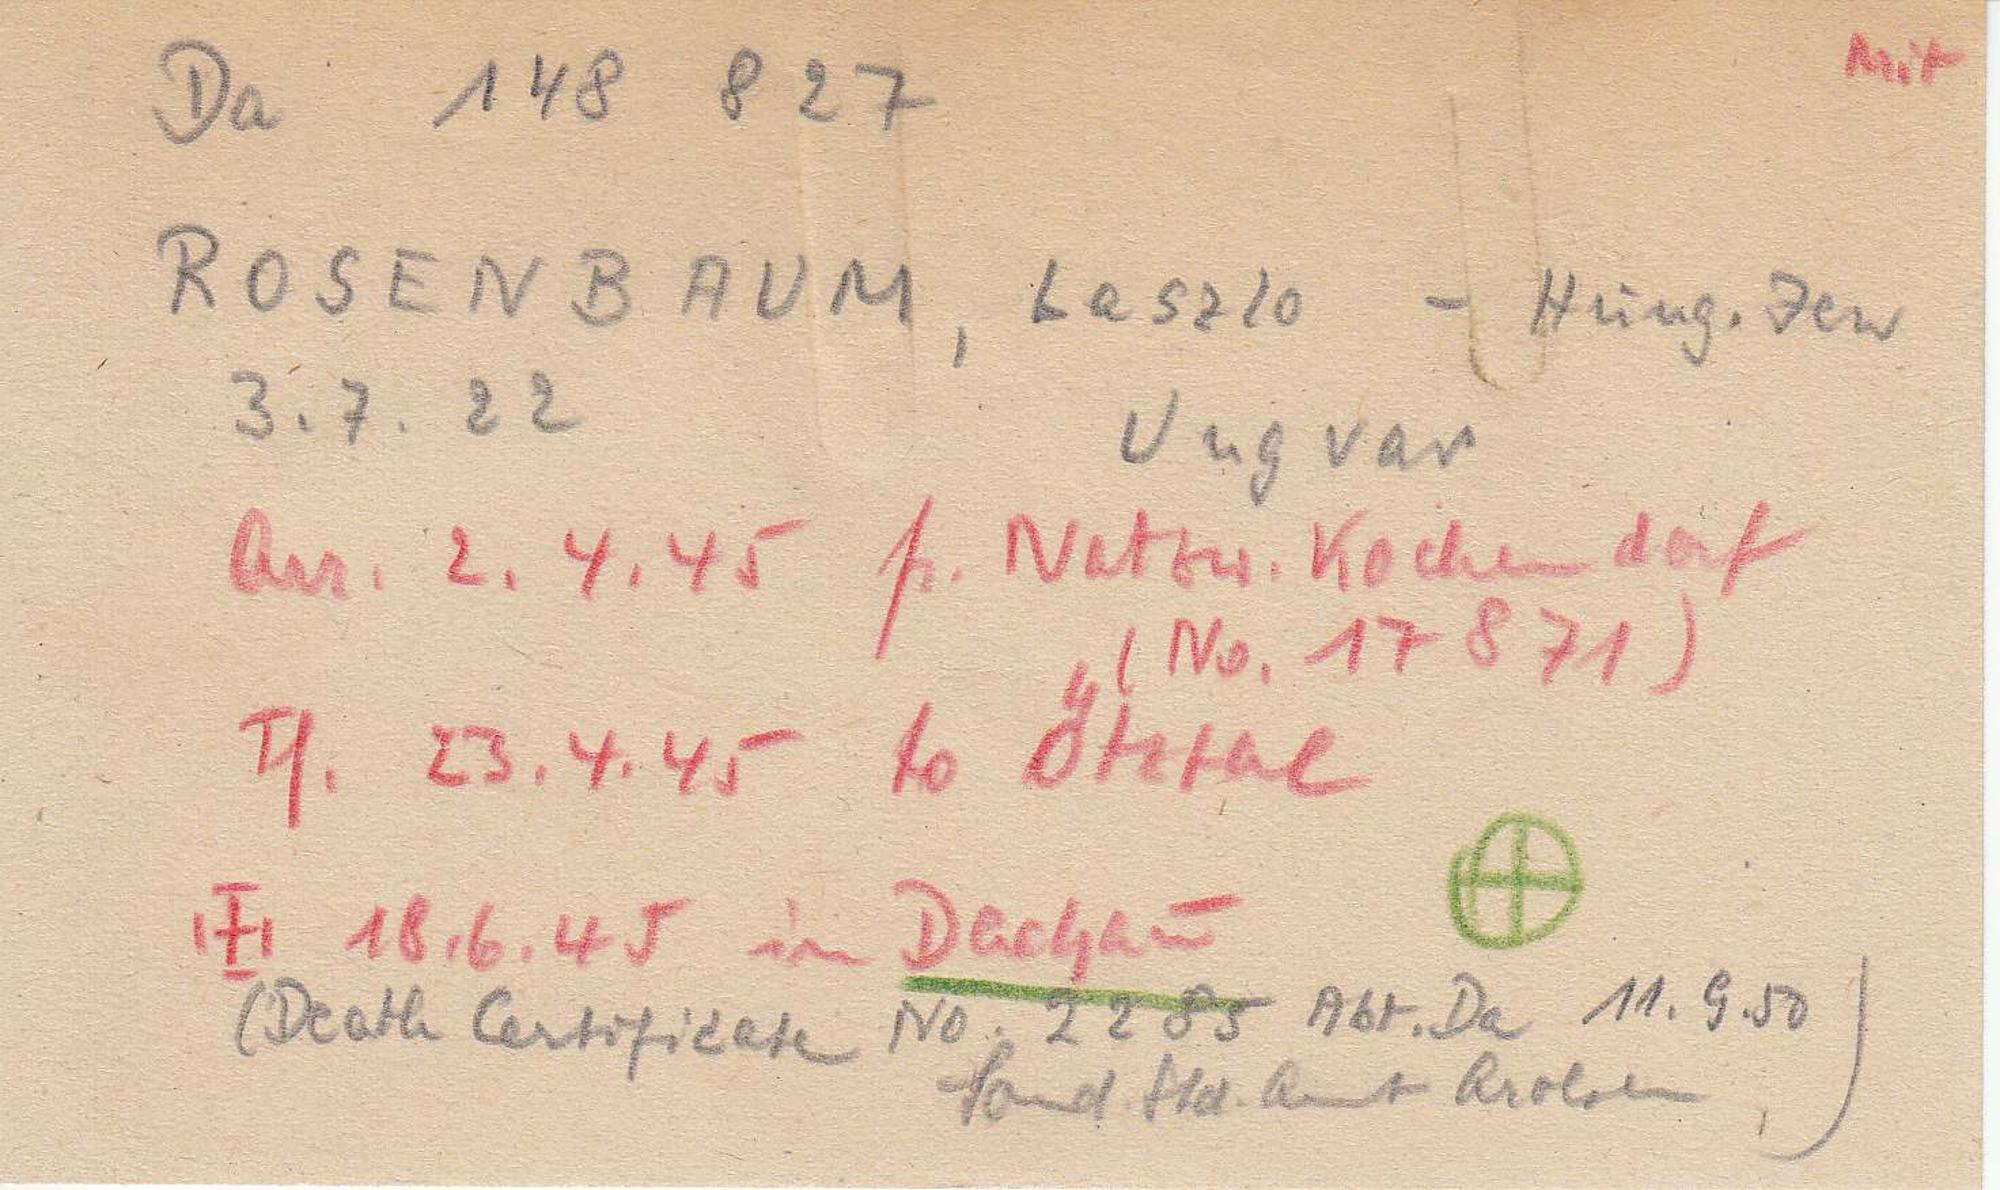 Mit
Da 148 827
ROSENBAUM, Laszlo - Hung. Jew
3.7.22 Ungvar
Arr. 2.4.45 fr. Natzw. Kochendorf
(No. 17871)
Tf. 23.4.45 to Ötztal
18.6.45 in Dachau
(Death Certificate No. 2285 Abt. Da 11.9.50
Sond. Std. Amt Arolsen)